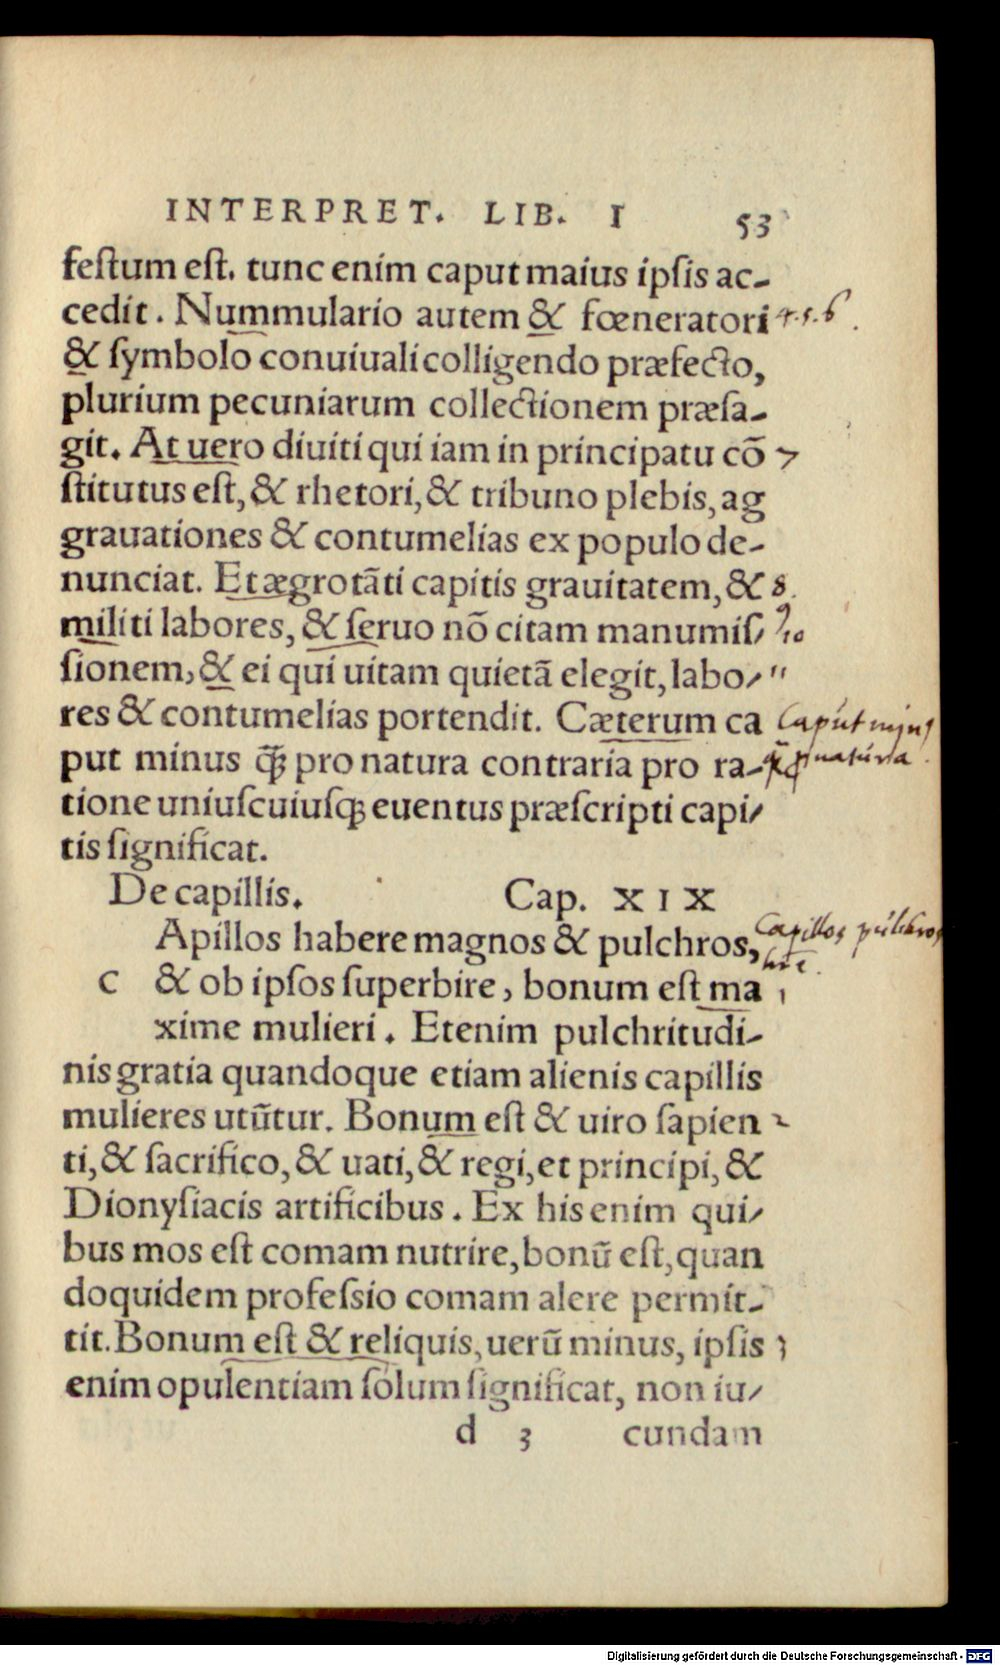 INTERPRET. LIB. I 53
festum est. tunc enim caput maius ipsis ac-
cedit. Nummulario autem & fœneratori 4.5.6.
& symbolo conuiuali colligendo præfecto,
plurium pecuniarum collectionem præsa-
git. At uero diuiti qui iam in principatu cō 7
stitutus est, & rhetori, & tribuno plebis, ag
grauationes & contumelias ex populo de-
nunciat. Et ægrotāti capitis grauitatem, & 8.
militi labores, & seruo nō citam manumis- 9 10
sionem, & ei qui uitam quietā elegit, labo- 11
res & contumelias portendit. Cæterum ca Caput minus
put minus q̃ꝫ pro natura contraria pro ra- natura.
tione uniuscuiusqꝫ euentus præscripti capi-
tis significat.
De capillis. Cap. XIX
Apillos habere magnos & pulchros, Capillos pulchros
C & ob ipsos superbire, bonum est ma 1
xime mulieri. Etenim pulchritudi-
nis gratia quandoque etiam alienis capillis
mulieres utūtur. Bonum est & uiro sapien 2
ti, & sacrifico, & uati, & regi, et principi, &
Dionysiacis artificibus. Ex his enim qui-
bus mos est comam nutrire, bonū est, quan
doquidem professio comam alere permit-
tit. Bonum est & reliquis, uerū minus, ipsis 3
enim opulentiam solum significat, non iu-
d 3 cundam
Digitalisierung gefördert durch die Deutsche Forschungsgemeinschaft - DFG